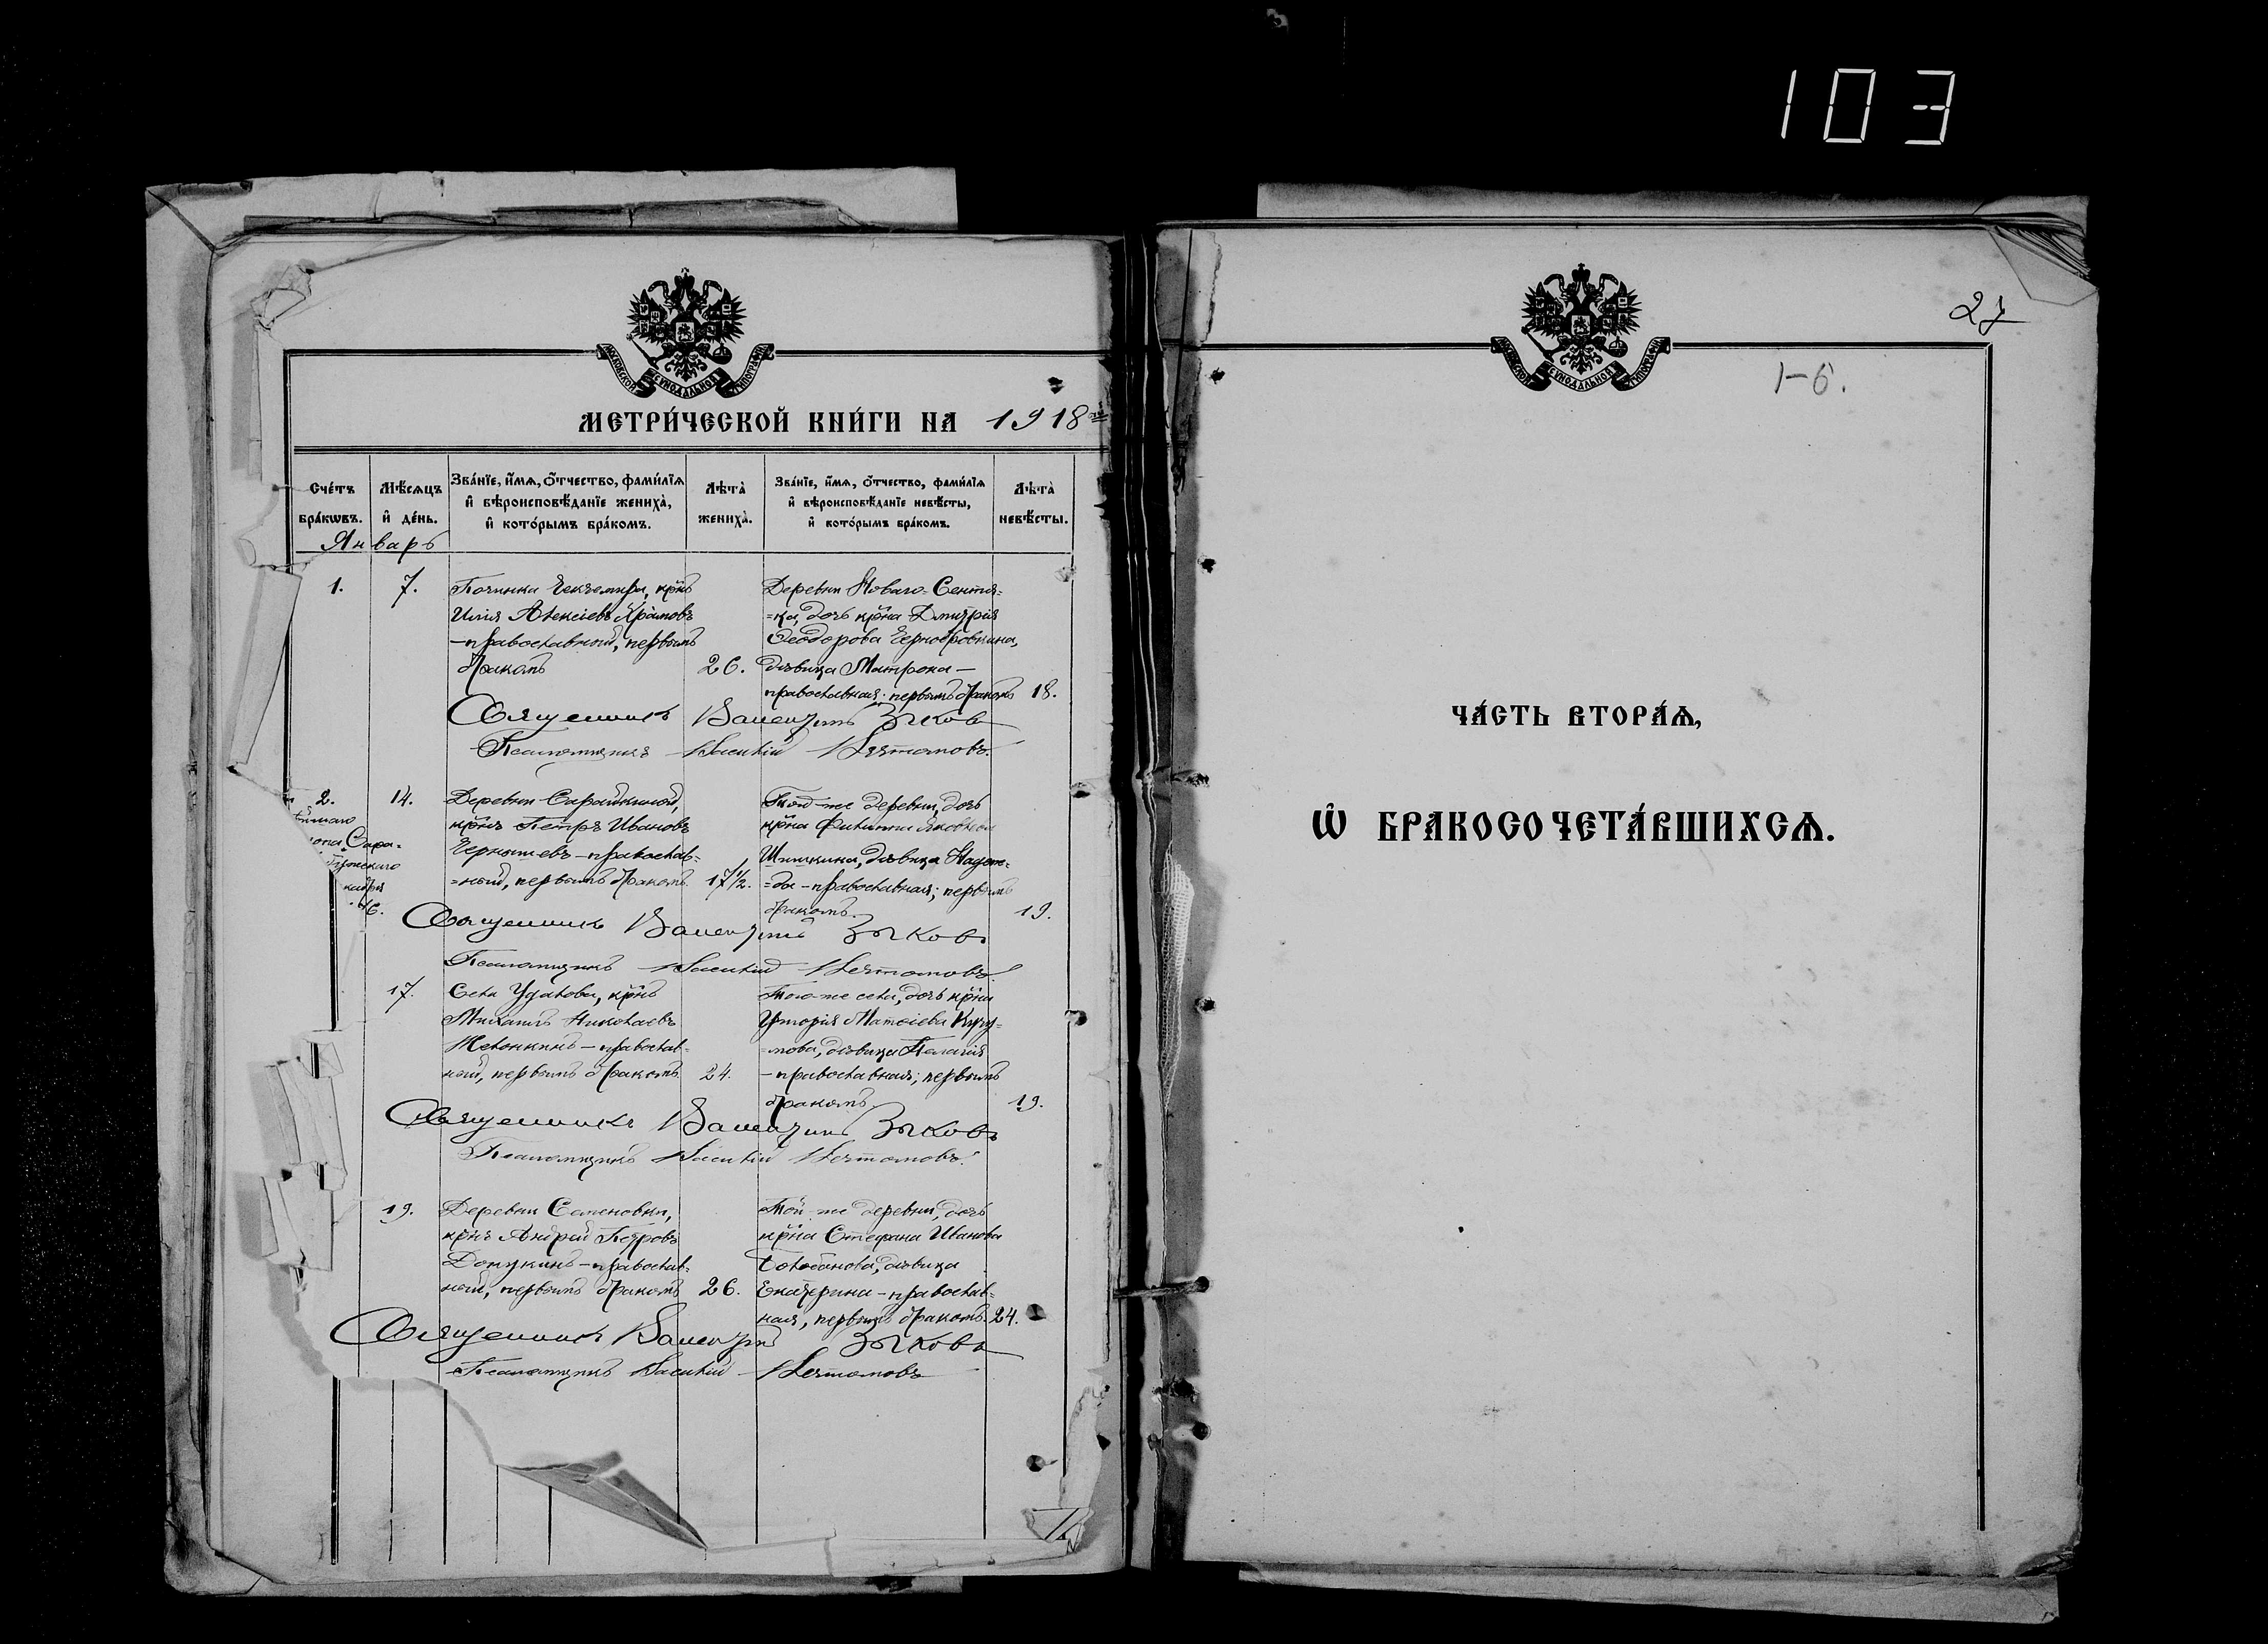 103
МОСКОВСКОЙ СѴНОДАЛЬНОЙ ТИПОГРАФІИ
МЕТРИ́ЧЕСКОЙ КНИ́ГИ НА 1918
Сче́тъ бра́кѡвъ.
Мѣ́сѧцъ и҆ де́нь.
Зва́нїе, и҆́мѧ, ѻ҆́тчество, фами́лїѧ
и҆ вѣроисповѣ́данїе жениха̀,
и҆ кото́рымъ бра́комъ.
Лѣ́та̀ жениха̀.
Зва́нїе, и҆́мѧ, ѻ҆́тчество, фами́лїѧ
и҆ вѣроисповѣ́данїе невѣ́сты,
и҆ кото́рымъ бра́комъ.
Лѣ́та̀ невѣ́сты.
Январь
1.
7.
Починка крнъ
Илія Алексіевъ Храмовъ
– православный, первымъ
бракомъ
26.
Деревни Новаго-
дочь крна Димитрія
Ѳеодорова
дѣвица Матрона –
православная; первымъ бракомъ
18.
Священникъ Валентинъ Зыковъ
Псаломщикъ Василій
2.
14.
Деревни
крнъ Петръ Ивановъ
Чернышевъ – православ=
=ный, первымъ бракомъ.
17½.
Той-же деревни, дочь
крна Филиппа Яковлева
Шишкина, дѣвица Надеж=
=да – православная; первымъ
бракомъ.
19.
Священникъ Валентинъ Зыковъ
Псаломщикъ Василій
17.
Села крнъ
Михаилъ Николаевъ
– православ=
ный, первымъ бракомъ.
24.
Того-же села, дочь крна
Григорія Матѳіева
дѣвица Пелагія
– православная; первымъ
бракомъ.
19.
Священникъ Валентинъ Зыковъ
Псаломщикъ Василій
19.
Деревни Семеновки,
крнъ Андрей Петровъ
– православ=
ный, первымъ бракомъ
26.
Той-же деревни, дочь
крна Стефана Иванова
дѣвица
Екатерина – православ=
ная, первымъ бракомъ.
24.
Священникъ Валентинъ Зыковъ
Псаломщикъ Василій
МОСКОВСКОЙ СѴНОДАЛЬНОЙ ТИПОГРАФІИ
27
1-6.
ЧА́СТЬ ВТОРА́Ѧ,
Ѽ БРАКОСОЧЕТА́ВШИХСѦ.